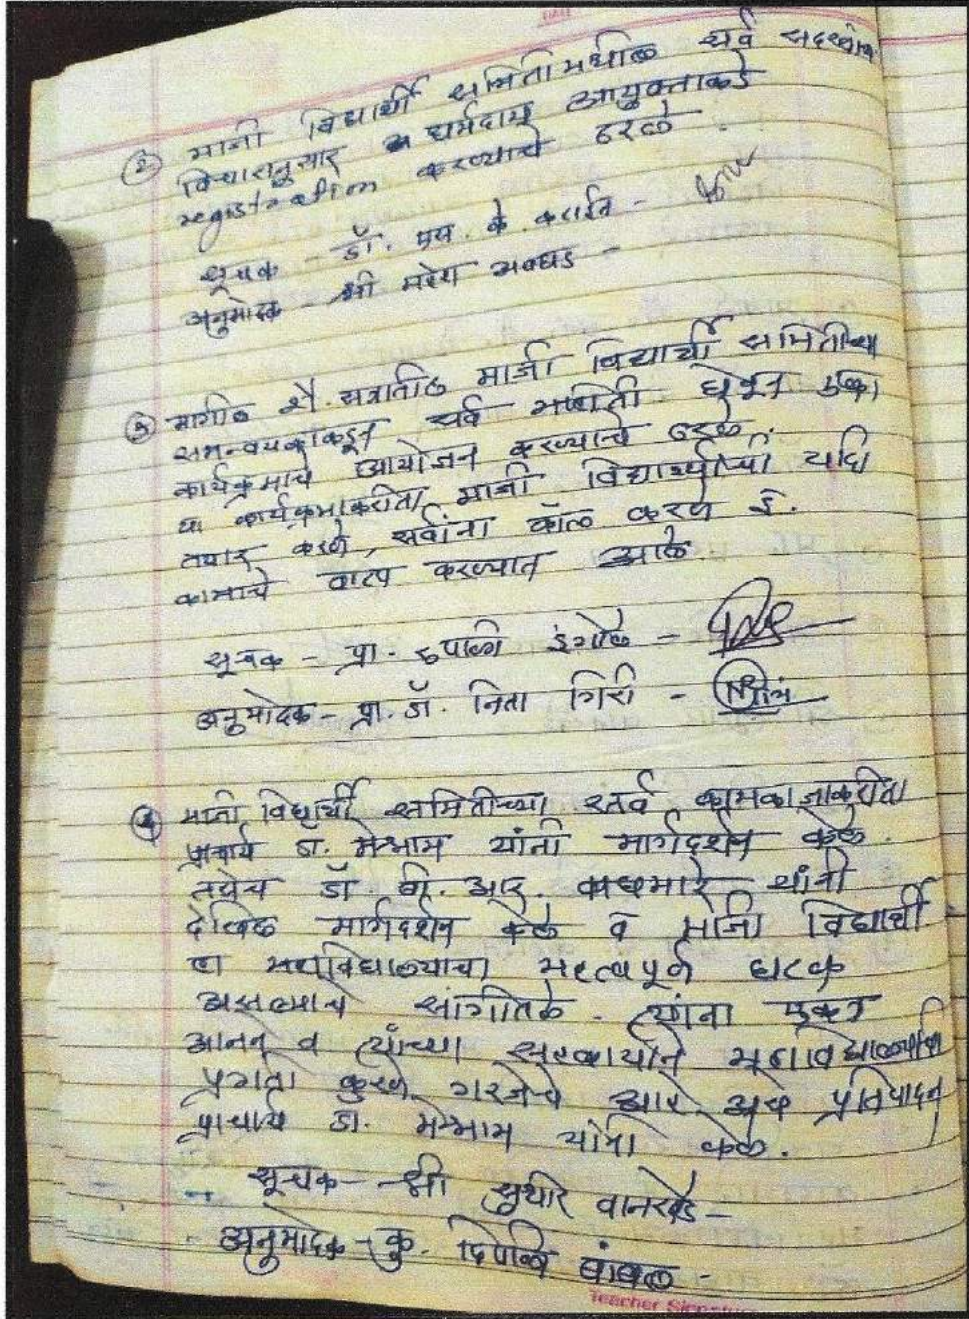 ② माजी विद्यार्थी समितीमधील सर्व सदस्यांच्या
विचारानुसार धर्मदाय आयुक्ताकडे
registration करण्याचे ठरले.
सूचक - डॉ. एस. के. कटाईत -
अनुमोदक - श्री महेश अवघड -
③ मागील शै. सत्रातील माजी विद्यार्थी समितीच्या
समन्वयकाकडून सर्व माहिती घेवून पुढील
कार्यक्रमाचे आयोजन करण्याचे ठरले.
या कार्यक्रमाकरीता माजी विद्यार्थ्यांची यादि
तयार करणे, सर्वांना कॉल करणे इ.
कामाचे वाटप करण्यात आले.
सूचक - प्रा. रुपाली इंगोले -
अनुमोदक - प्रा. डॉ. निता गिरी -
④ माजी विद्यार्थी समितीच्या सर्व कामकाजाकरीता
प्राचार्य डा. मेश्राम यांनी मार्गदर्शन केले.
तसेच डॉ. बी. आर. वाघमारे यांनी
देखिल मार्गदर्शन केले व माजी विद्यार्थी
हा महाविद्यालयाचा महत्वपूर्ण घटक
असल्याचे सांगीतले. त्यांना एकत्र
आनने व त्यांच्या सहकार्याने महाविद्यालयाची
प्रगती करणे गरजेचे आहे असे प्रतिपादन
प्राचार्य डा. मेश्राम यांनी केले.
सूचक - श्री सुधीर वानखडे -
अनुमोदक - कु. दिपाली
Teacher Signature